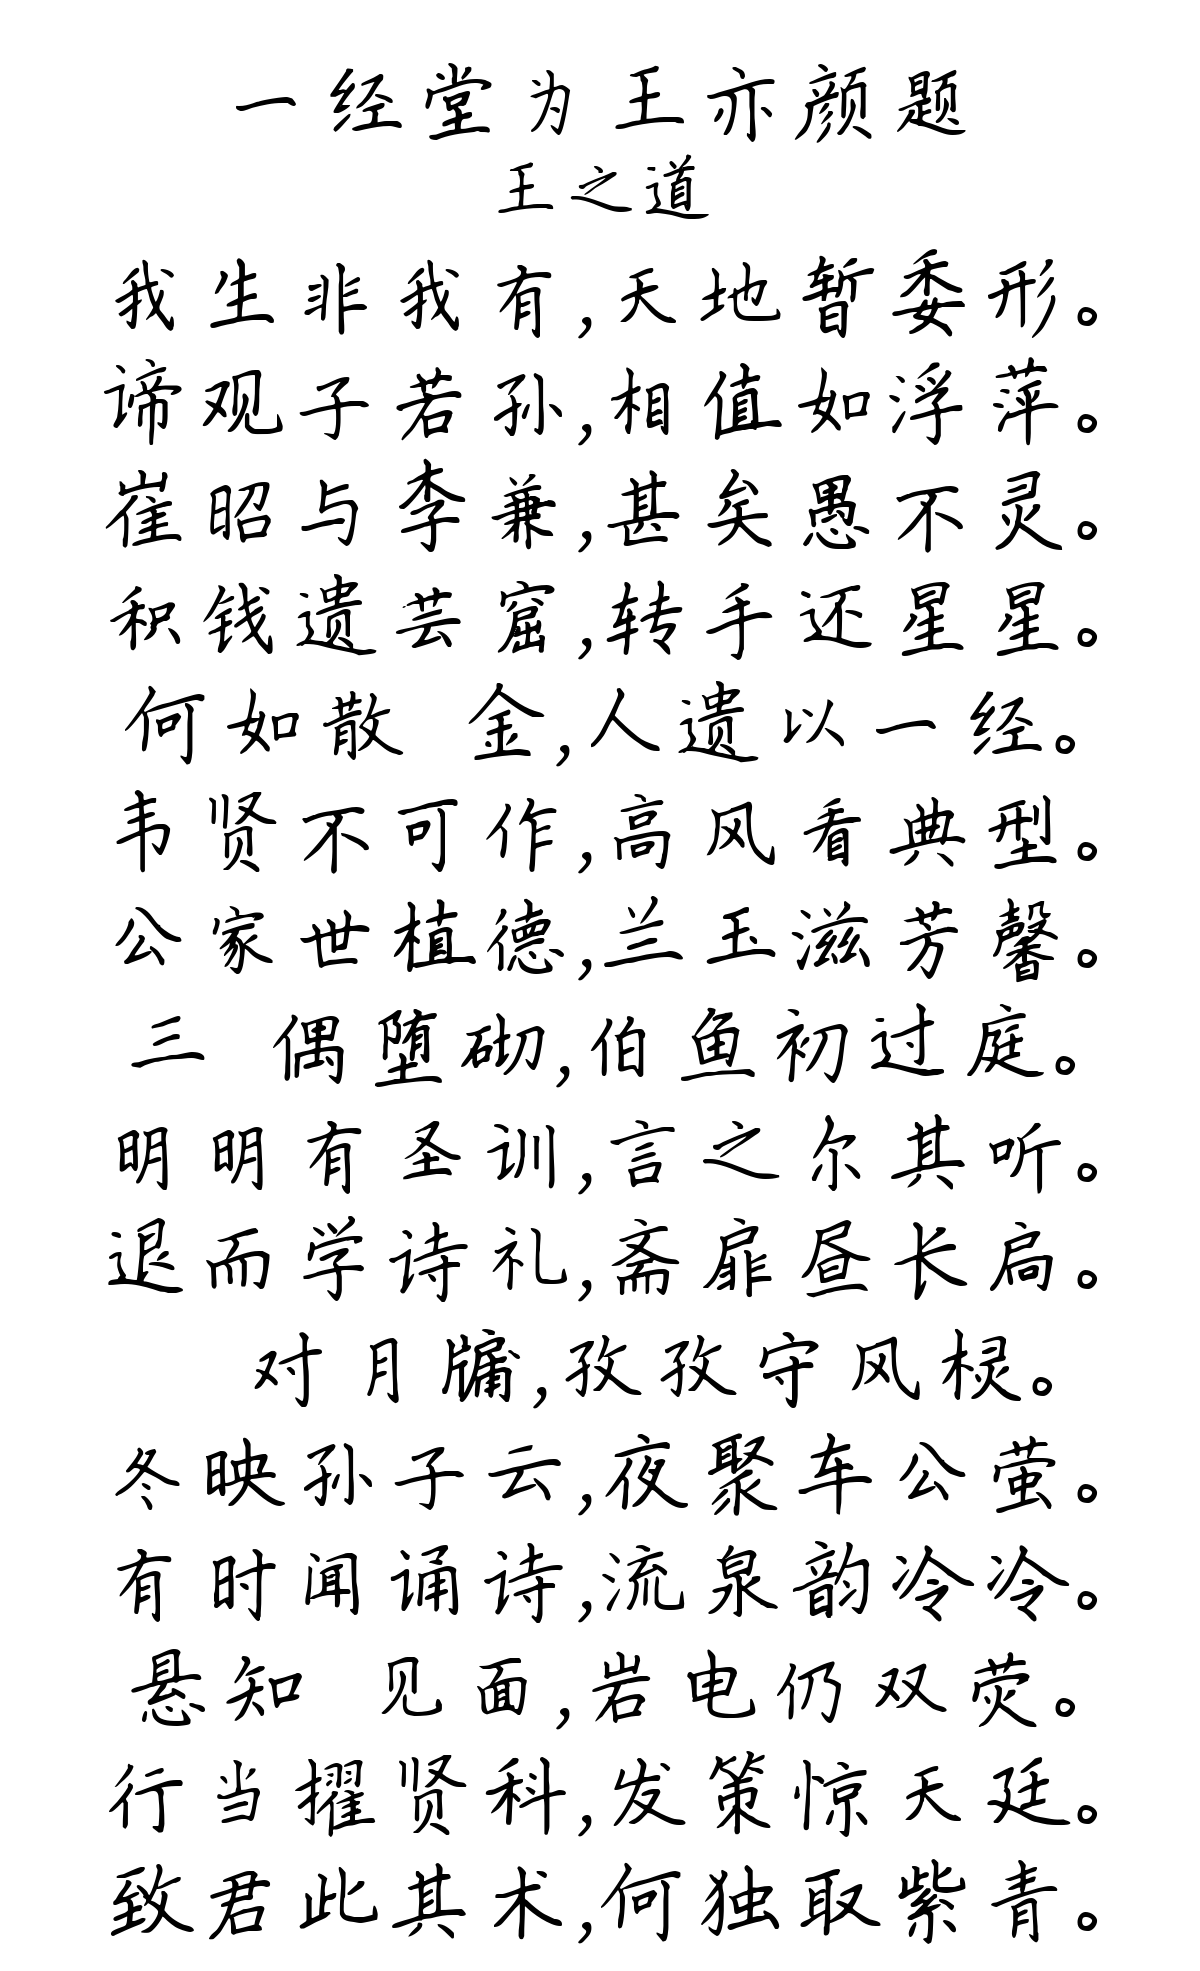 一经堂为王亦颜题
王之道
我生非我有,天地暂委形。
谛观子若孙,相值如浮萍。
崔昭与李兼,甚矣愚不灵。
积钱遗芸窟,转手还星星。
何如散 金,人遗以一经。
韦贤不可作,高风看典型。
公家世植德,兰玉滋芳馨。
三 偶堕砌,伯鱼初过庭。
明明有圣训,言之尔其听。
退而学诗礼,斋扉昼长扃。
对月牖,孜孜守风棂。
冬映孙子云,夜聚车公萤。
有时闻诵诗,流泉韵冷冷。
悬知 见面,岩电仍双荧。
行当擢贤科,发策惊天廷。
致君此其术,何独取紫青。